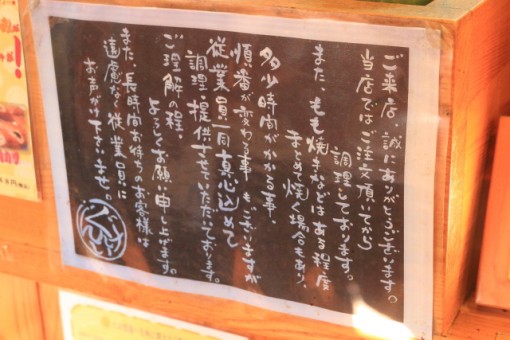 ご来店 誠にありがとうございます。
当店ではご注文頂いてから
調理しております。
また、もも焼きなどはある程度
まとめて焼く場合もあり、
多少時間がかかる事、
順番が変わる事もございますが
従業員一同真心込めて
調理、提供させていただいております。
ご理解の程、
よろしくお願い申し上げます。
また、長時間お待ちのお客様は
遠慮なく従業員に
お声がけ下さいませ。